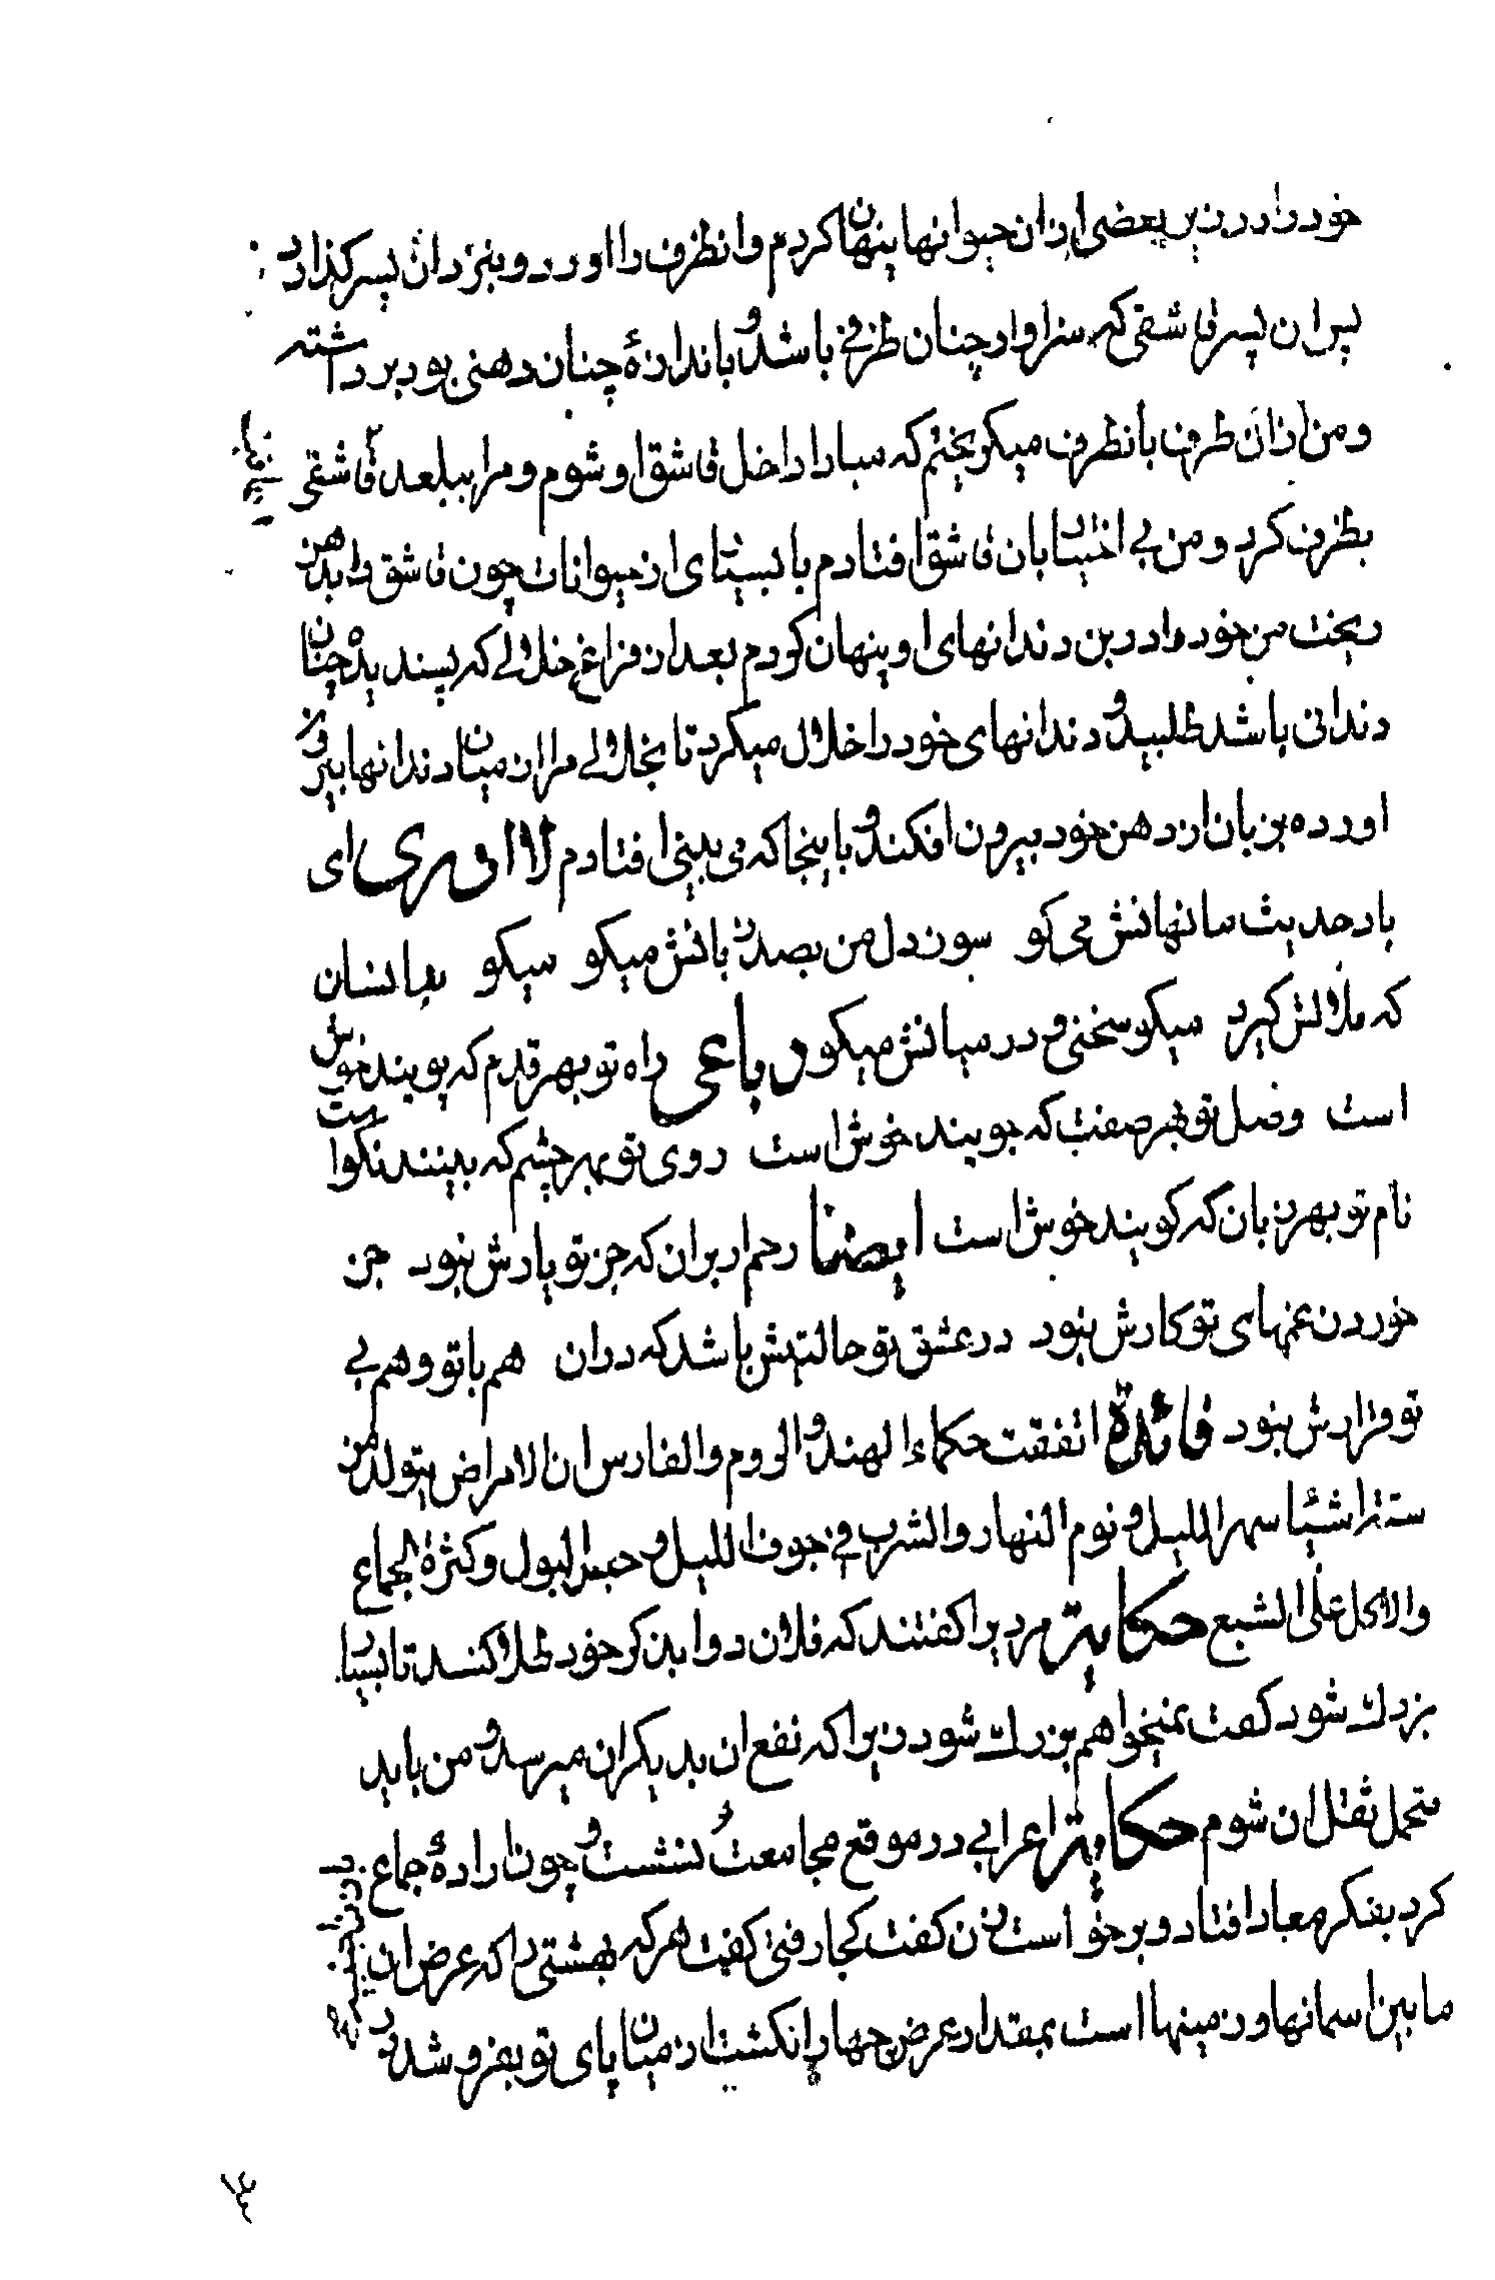 خود را در زیر بعضی از ان حیوانها پنهان کردم و انظرف را اورد و بنزد ان پسر کذارد
پس ان پسر قاشقی که سزاوار چنان ظرفی باشد و باندازهٔ چنان دهنی بود برداشته
و من از ان طرف بانظرف میکریختم که مبادا داخل قاشق او شوم و مرا ببلعد تا قاشقی
بظرف کرد و من بی اختیار بان قاشق افتادم با بسیاری از حیوانات چون قاشق را بدهن
ریخت من خود را در بن دندانهای او پنهان کردم بعد از فراغ خلالی که پسندیده چنان
دندانی باشد طلبید و دندانهای خود را خلال میکرد تا بخلالی مرا از میان دندانها بیرون
اورده بزبان از دهن خود بیرون افکند و باینجا که می بینی افتادم لاادری ای
باد حدیث ما نهانش می کو سوز دل من بصد زبانش میکو میکو نه بدانسان
که ملالش کیرد میکو سخنی و در میانش میکو رباعی راه تو بهر قدم که پویند خوش
است وصل تو بهر صفت که جویند خوش است روی تو بهر چشم که بینند نکوست
نام تو بهر زبان که کویند خوش است ایضا رحم ار بر ان که جز تو یارش نبود جز
خوردن غمهای تو کارش نبود در عشق تو حالتیش باشد که دران هم با تو و هم بی
تو قرارش نبود فائدة اتفقت حکماء الهند و الروم والفارس ان الامراض یتولد من
ستة اشیا سهر اللیل و نوم النهار والشرب فی جوف اللیل و حبس البول و کثرة الجماع
والاکل علی الشبع حکایة مردیرا کفتند که فلان دوا بذکر خود طلا کنند تا بسیار
بزرك شود کفت نمیخواهم بزرك شود زیرا که نفع ان بدیکران میرسد و من باید
متحمل ثقل ان شوم حکایة اعرابی در موقع مجامعت نشست و چون ارادهٔ جماع
کرد بفکر معاد افتاد و برخواست زن کفت کجا رفتی کفت هر که بهشتی را که عرض ان
ما بین اسمانها و زمینها است بمقدار عرض چهار انکشت از میان پای تو بفروشد